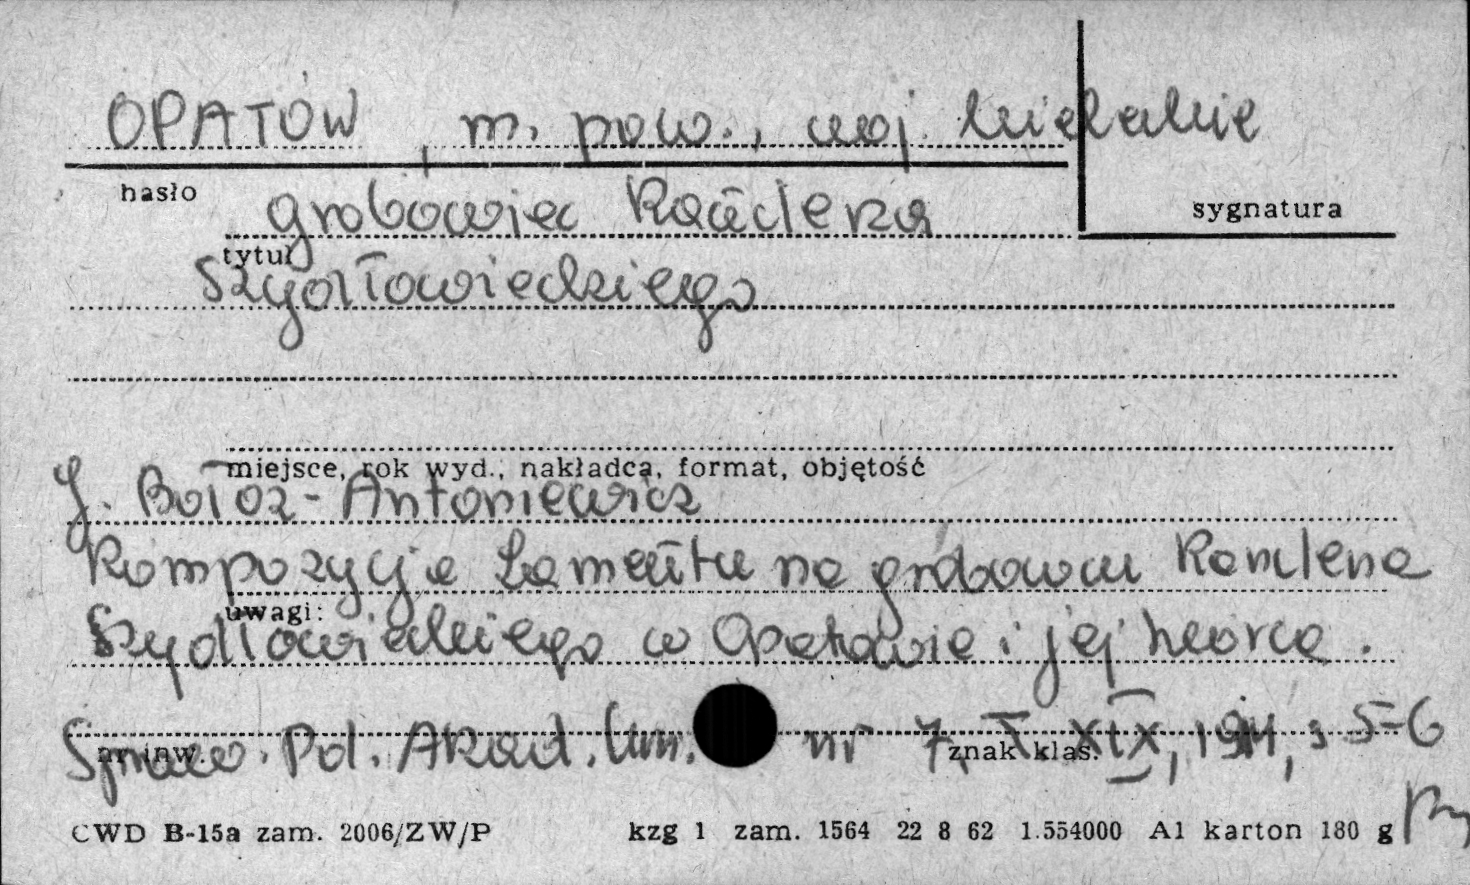 OPATÓW, m. pow., woj. kieleckie
hasło
sygnatura
grobowiec Kanclerza
tytuł
Szydłowieckiego
miejsce, rok wyd., nakładca, format, objętość
J. Bołoz-Antoniewicz
Kompozycja Lamentu na grobowcu Kanclerza
uwagi:
Szydłowieckiego w Opatowie i jej twórca.
Spraw. Pol. Akad. Um. nr 7, 1911, s 5-6
nr inw.
znak klas.
CWD B-15a zam. 2006/ZW/P kzg 1 zam. 1564 22 8 62 1.554000 A1 karton 180 g